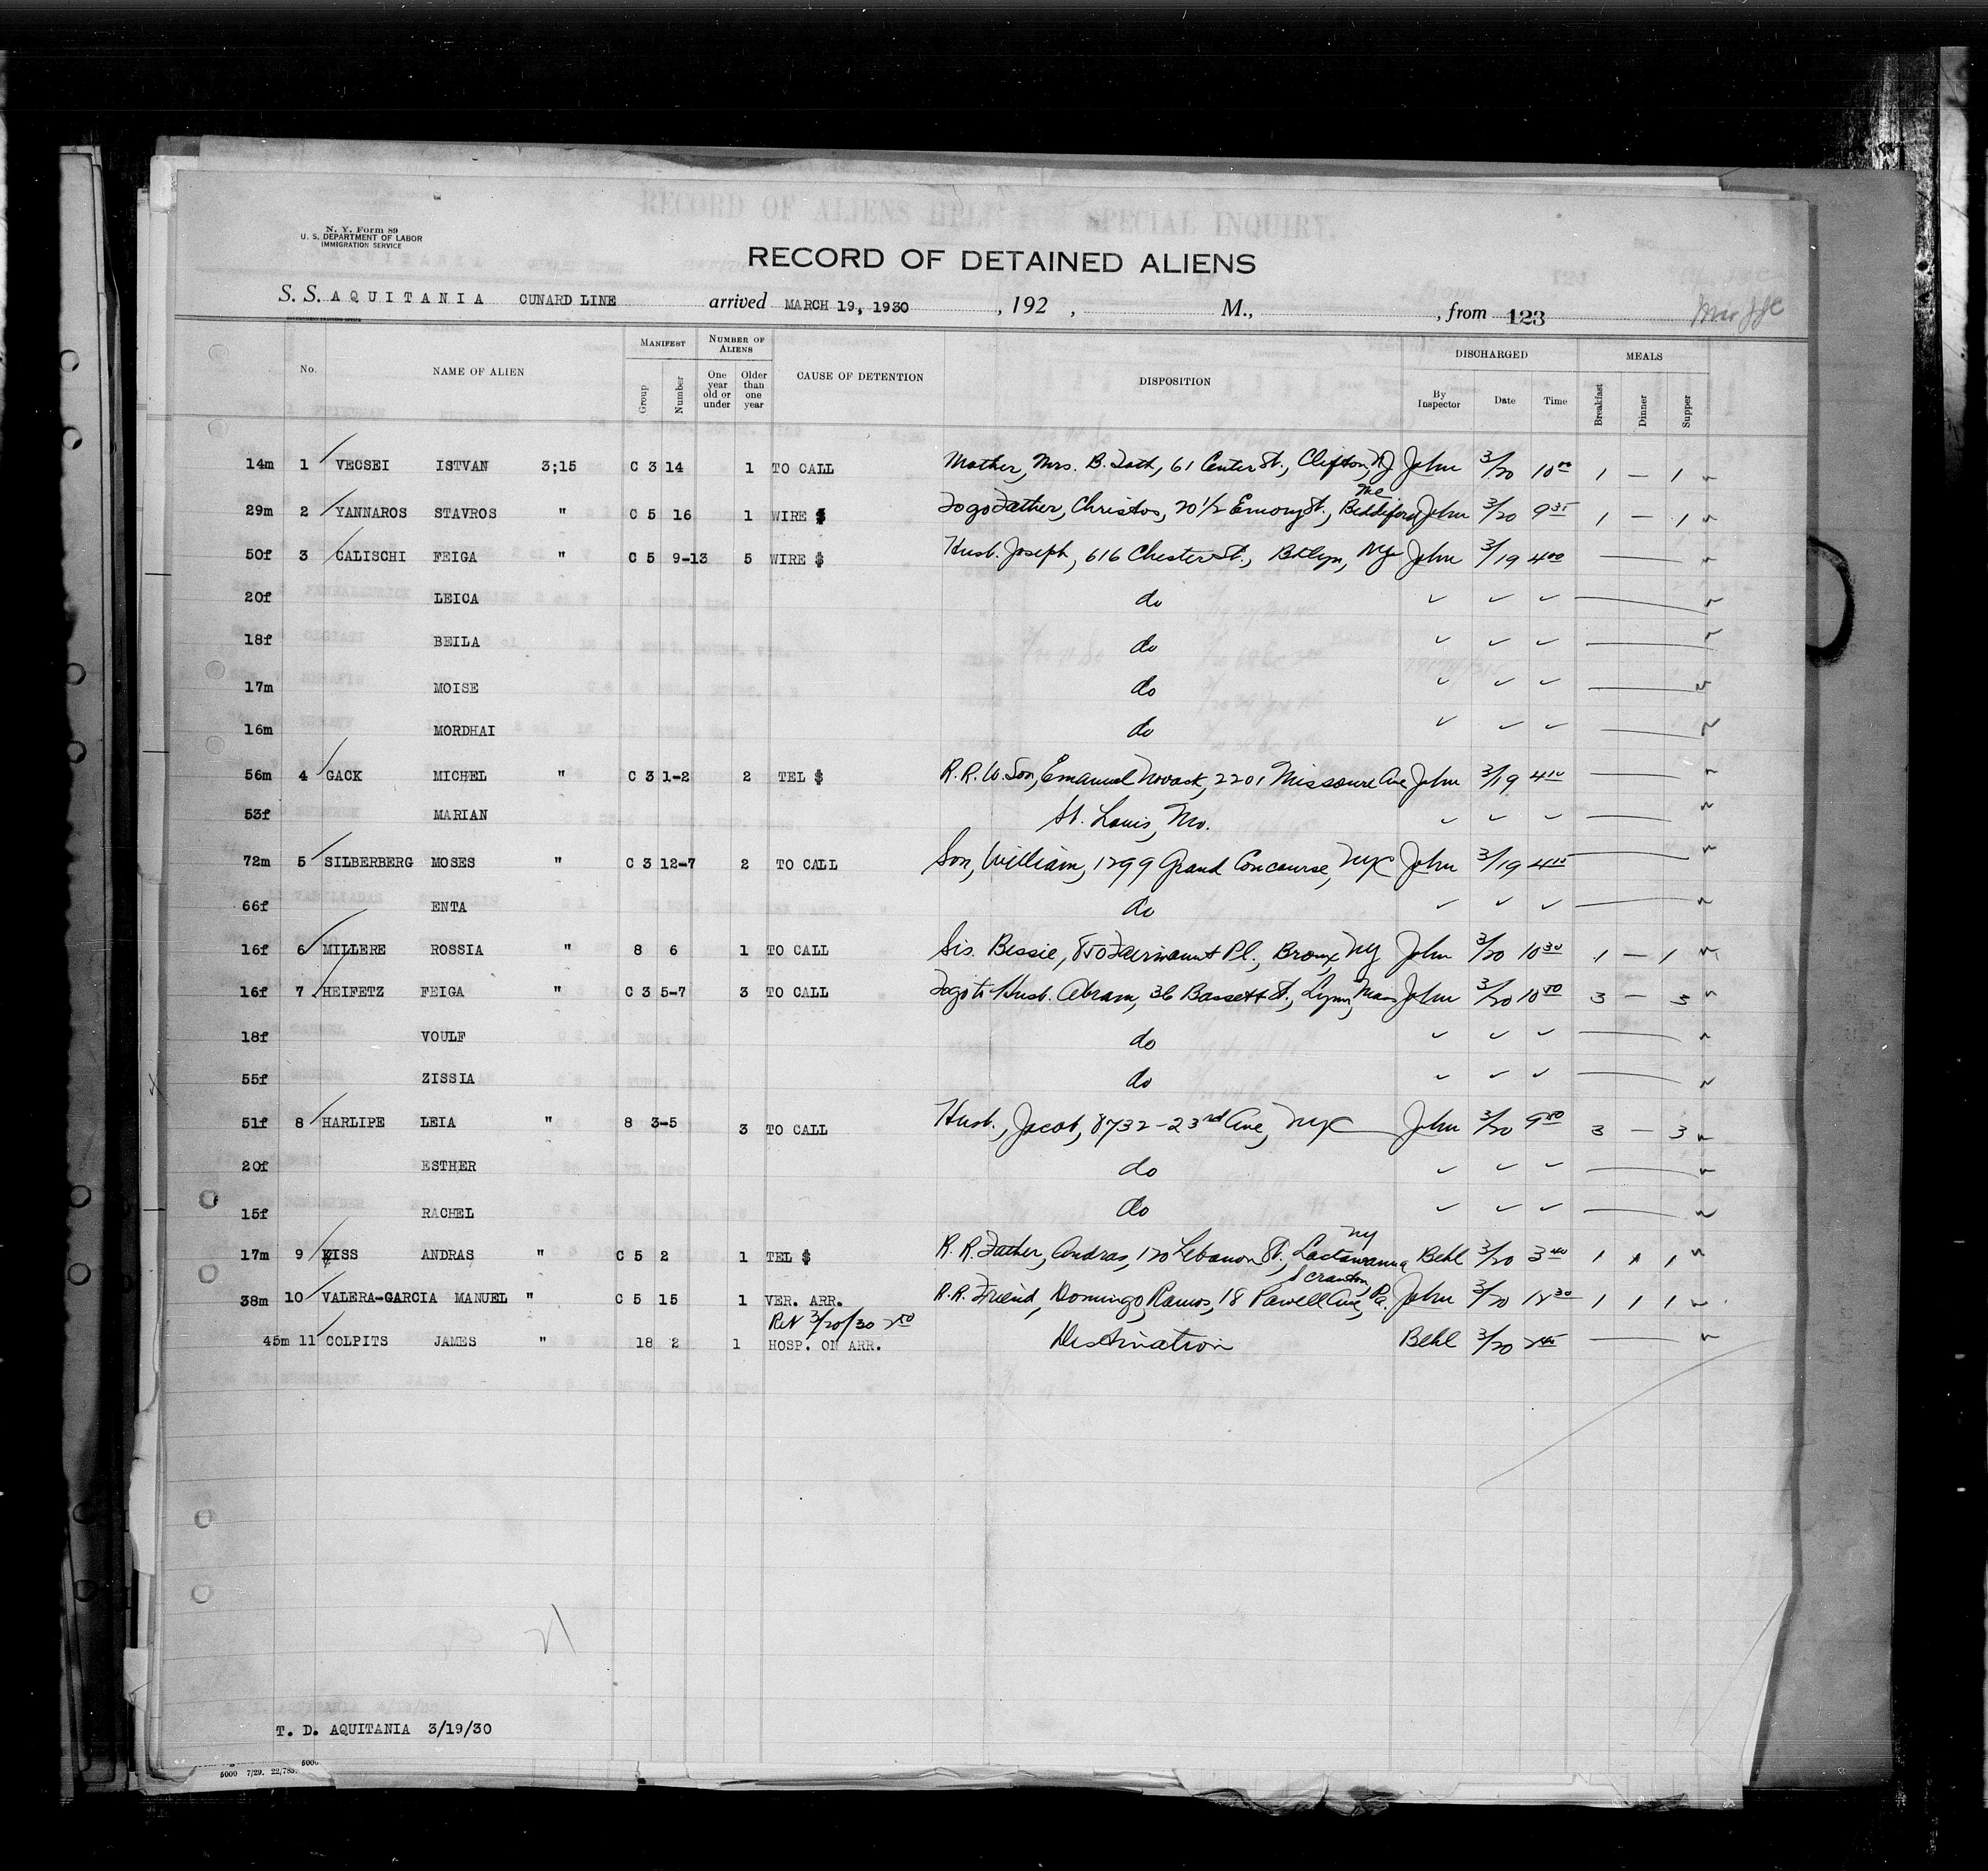 N. Y. Form 89
U. S. DEPARTMENT OF LABOR
IMMIGRATION SERVICE
RECORD OF ALIENS HELD SPECIAL INQUIRY.
RECORD OF DETAINED ALIENS
S. S. AQUITANIA CUNARD LINE arrived MARCH 19, 1930 , 192 , M., , from 123
No. NAME OF ALIEN MANIFEST NUMBER OF ALIENS CAUSE OF DETENTION DISPOSITION DISCHARGED MEALS
Group Number One year old or under Older than one year By Inspector Date Time Breakfast Dinner Supper
14m 1 VECSEI ISTVAN 3;15 C 3 14 1 TO CALL Mother, Mrs. B. Toth, 61 Center St., Clifton, NJ John 3/20 10 00 1 — 1
Me
29m 2 YANNAROS STAVROS " C 5 16 1 WIRE $ Togo Father, Christos, 20 1/2 Emory St., Biddeford John 3/20 9 35 1 — 1
50f 3 CALISCHI FEIGA " C 5 9-13 5 WIRE $ Husb. Joseph, 616 Chester St., Bklyn, NY John 3/19 4 00
20f LEICA do ✓ ✓ ✓
18f BEILA do ✓ ✓ ✓
17m MOISE do ✓ ✓ ✓
16m MORDHAI do ✓ ✓ ✓
56m 4 GACK MICHEL " C 3 1-2 2 TEL $ R.R. to Son, Emanuel Novack, 2201 Missouri Ave John 3/19 4 10
53f MARIAN St. Louis, Mo. ✓ ✓ ✓
72m 5 SILBERBERG MOSES " C 3 12-7 2 TO CALL Son, William, 1299 Grand Concourse, NYC John 3/19 4 15
66f ENTA do ✓ ✓ ✓
16f 6 MILLERE ROSSIA " 8 6 1 TO CALL Sis. Bessie, 850 Fairmount Pl., Bronx, NY John 3/20 10 30 1 — 1
16f 7 HEIFETZ FEIGA " C 3 5-7 3 TO CALL Togo to Husb. Abram, 36 Bassett St., Lynn, Mass John 3/20 10 50 3 — 3
18f VOULF do ✓ ✓ ✓
55f ZISSIA do ✓ ✓ ✓
51f 8 HARLIPE LEIA " 8 3-5 3 TO CALL Husb., Jacob, 8732-23rd Ave, NYC John 3/20 9 50 3 — 3
20f ESTHER do ✓ ✓ ✓
15f RACHEL do ✓ ✓ ✓
NY
17m 9 KISS ANDRAS " C 5 2 1 TEL $ R.R. Father, Andras, 120 Lebanon St., Lactawanna Behl 3/20 3 40 1 1 1
Scranton,
38m 10 VALERA-GARCIA MANUEL " C 5 15 1 VER. ARR. R.R. Friend, Domingo Ramos, 18 Powell Ave, Pa. John 3/20 12 30 1 1 1
Ret 3/20/30 2 50
45m 11 COLPITS JAMES " 18 2 1 HOSP. ON ARR. Destination Behl 3/20
21
T. D. AQUITANIA 3/19/30
5000 7/29. 22/785.